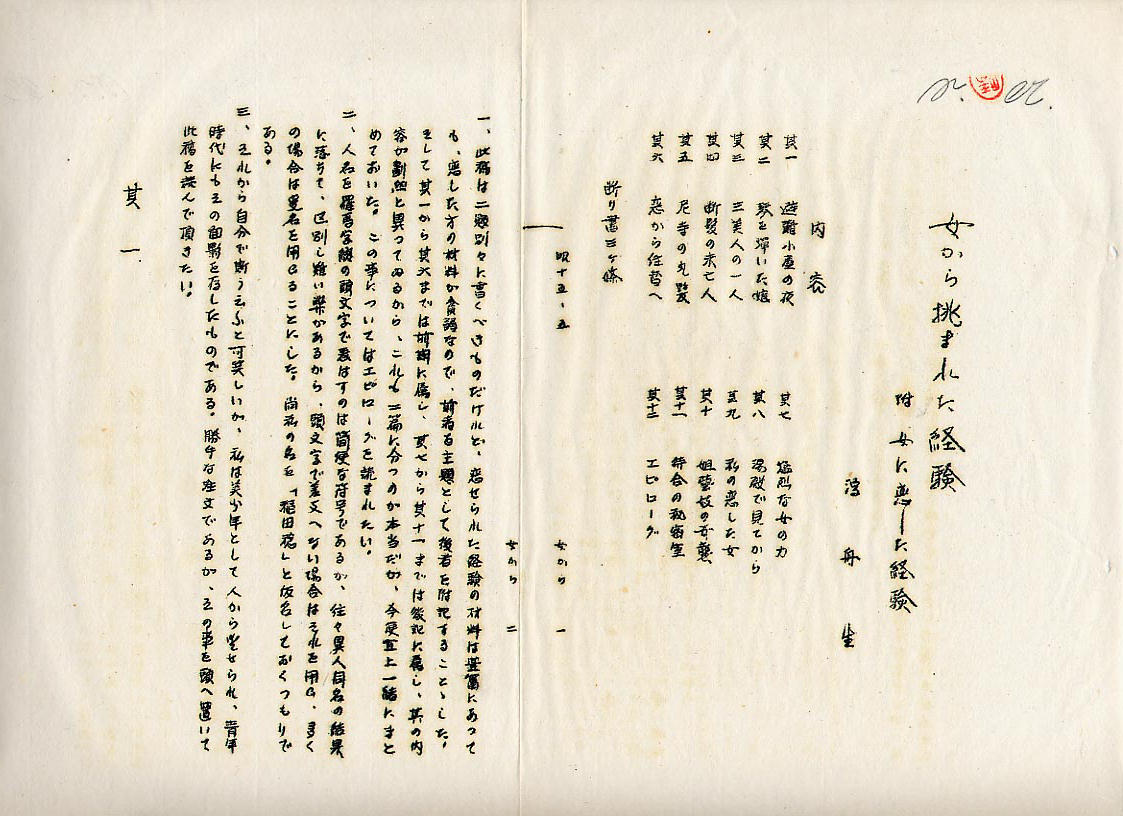 女から挑まれた経験
附 女に恋した経験
舟生
内容
其一 遊廓小屋の夜
其二 琴を弾いた娘
其三 三美人の一人
其四 断髪の未亡人
其五 尼寺の丸髷
其六 恋から往昔へ
其七 猛烈な女の力
其八 湯殿で見てから
其九 私の恋した女
其十 姐藝妓の奇襲
其十一 待合の秘密室
其十二 エピローグ
断り書三ヶ條
女から 一
女から 二
一、此稿は二類別々に書くべきものだけれど、恋せられた経験の材料は豊富にあつて
も、恋した方の材料が貧弱なので、前者を主題として後者を附記することゝした。
そして其一から其六までは前期に属し、其七から其十一までは後記に属し、其の内
容が劃然と異つてゐるから、これも二篇に分つのが本当だが、今便宜上一緒にまと
めておいた。この事についてはエピローグを読まれたい。
二、人名を羅馬字綴の頭文字で表はすのは簡便な符号であるが、往々異人同名の結果
に落ちて、区別し難い弊があるから、頭文字で差支へない場合はそれを用ゐ、多く
の場合は変名を用ゐることにした。尚私の名を「稲田穂」と仮名しておくつもりで
ある。
三、それから自分で断う云ふと可笑しいが、私は美少年として人から望せられ、青年
時代にもその面影を存したものである。勝手な註文であるが、その事を頭へ置いて
此稿を読んで頂きたい。
其一